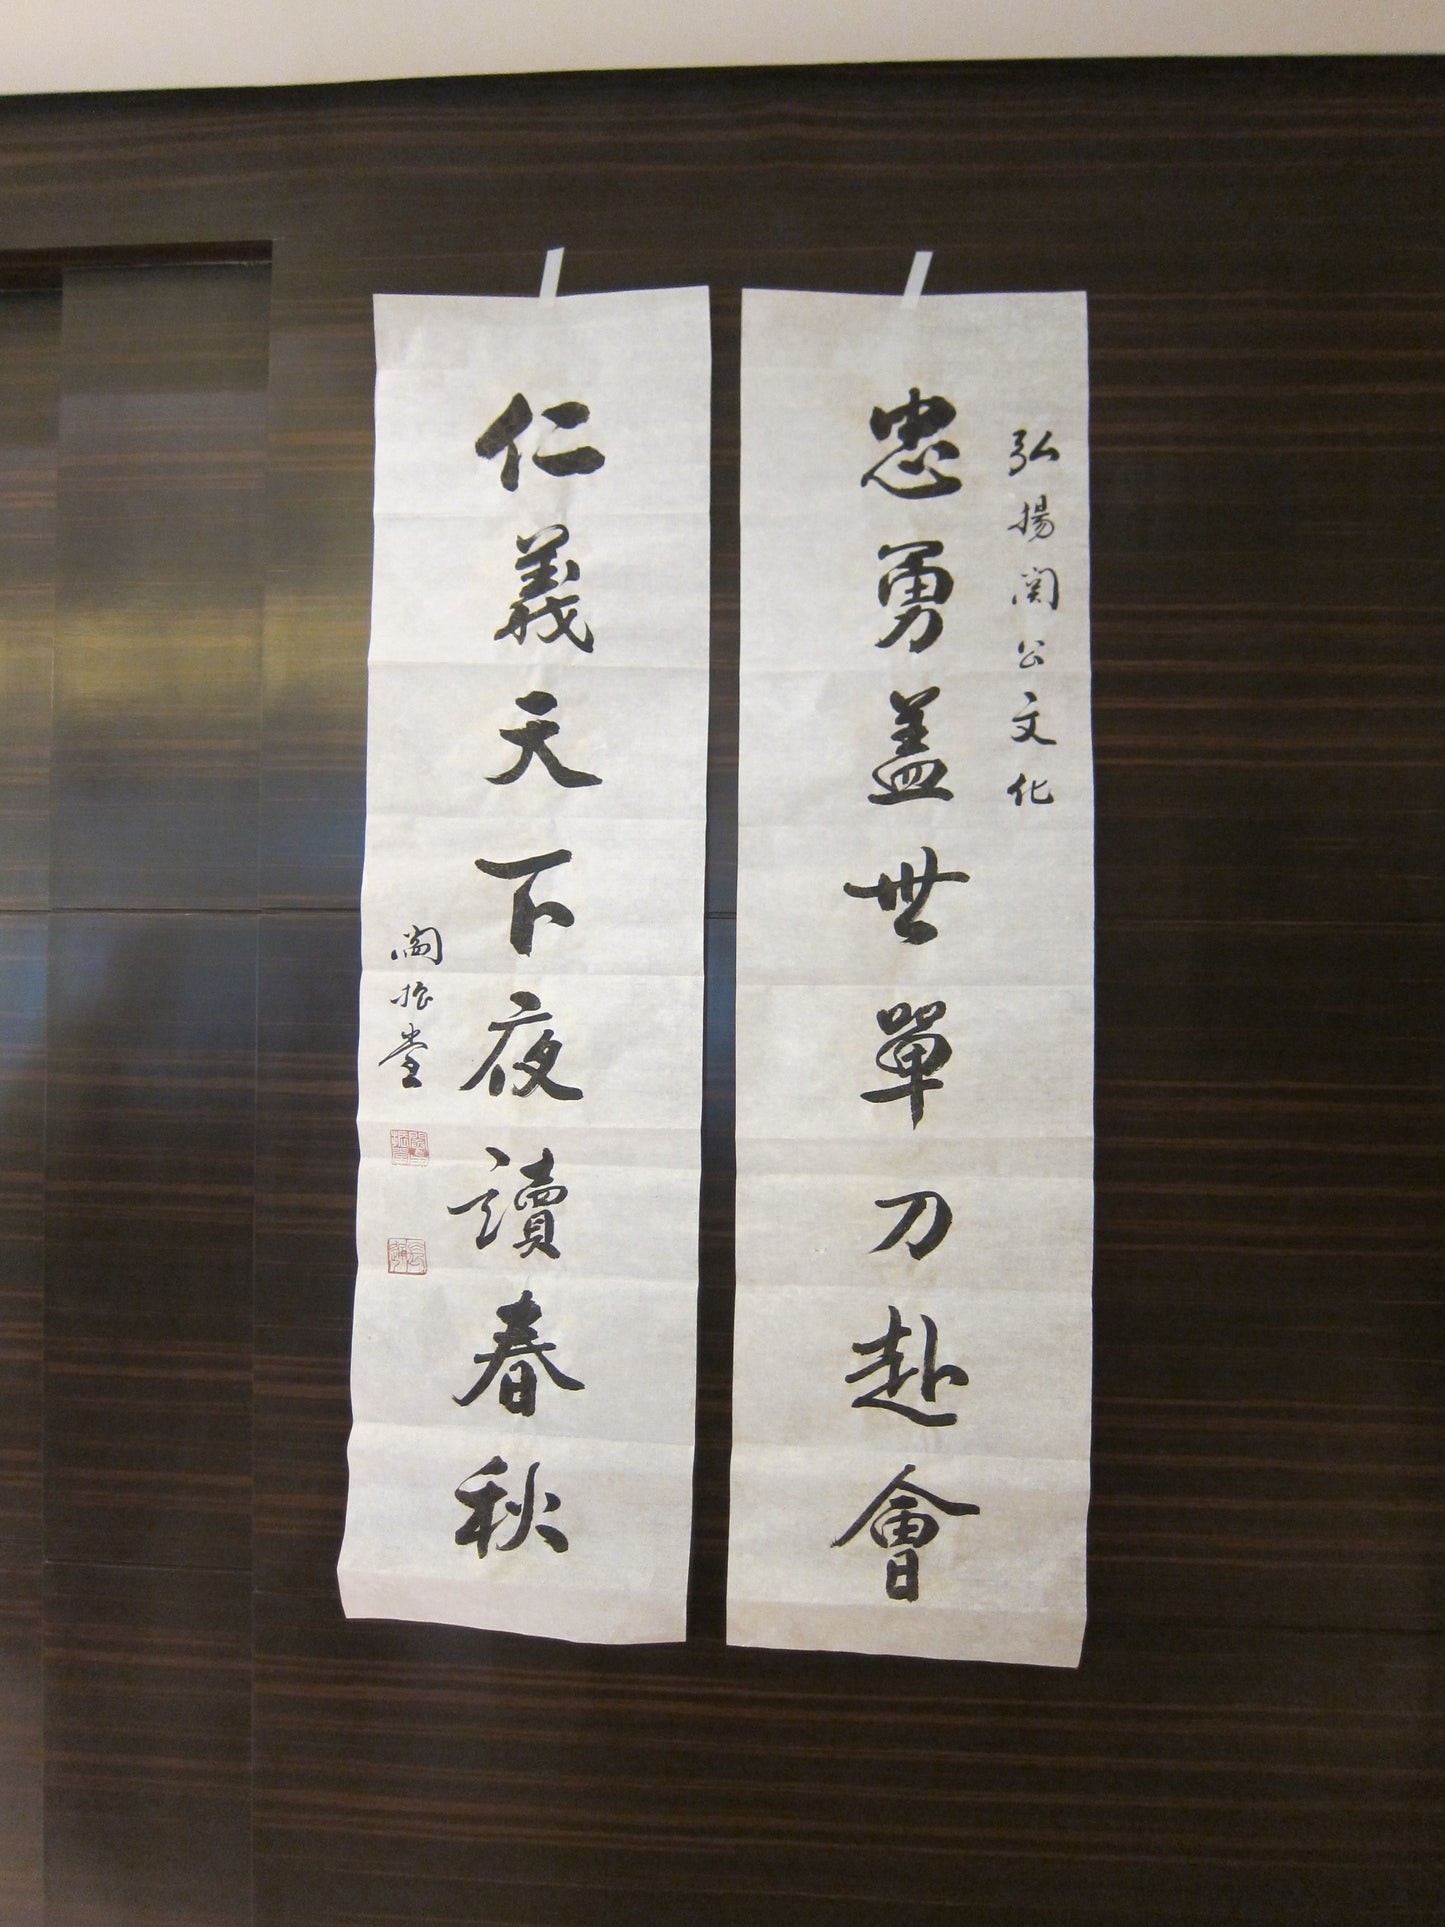 弘揚関公文化
忠勇盖世單刀赴會
仁義天下夜讀春秋